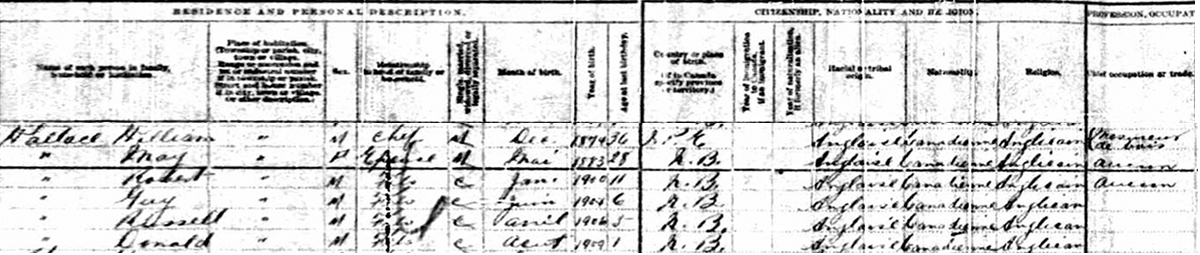 RESIDENCE AND PERSONAL DESCRIPTION. CITIZENSHIP, NATIONALITY AND RELIGION. PROFESSION, OCCUPAT
Name of each person in family, household or institution.
Place of habitation. (Township or parish, city, town or village.
Sex.
Relationship to head of family or household.
Month of birth.
Year of birth.
Age at last birthday.
Country or place of birth. (If in Canada specify province or territory.)
Year of immigration to Canada, if an immigrant.
Year of naturalization, if formerly an alien.
Racial or tribal origin.
Nationality.
Religion.
Chief occupation or trade.
Wallace William " M Chef M Dec 1874 36 I. P. E Anglaise Canadienne Anglican
" May " F Epouse M Mai 1883 28 N. B. Anglaise Canadienne Anglican aucun
" Robert " M Fils C Jan 1900 11 N. B. Anglaise Canadienne Anglican aucun
" Guy " M Fils C Juin 6 N. B. Anglaise Canadienne Anglican
" Russell " M Fils C avril 1906 5 N. B. Anglaise Canadienne Anglican
" Donald " M Fils C Aout 1909 1 N. B. Anglaise Canadienne Anglican